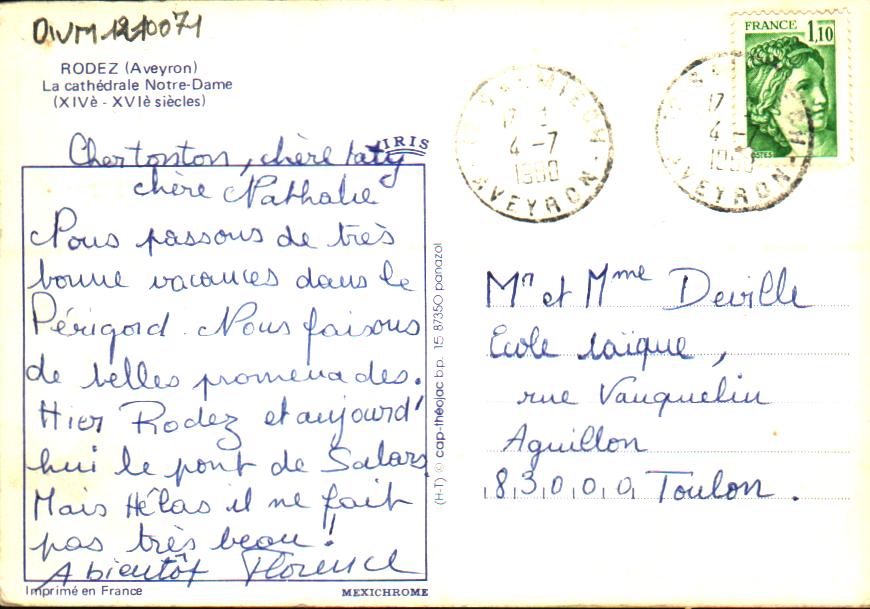 DIVM1210071
RODEZ (Aveyron)
La cathédrale Notre-Dame
(XIVè - XVIè siècles)
IRIS
Cher tonton, chère taty
chère Nathalie
Nous passons de très
bonne vacances dans le
Périgord. Nous faisons
de belles promenades.
Hier Rodez et aujourd'
hui le pont de Salars
Mais Hélas il ne fait
pas très beau!
A bientôt Florence
Imprimé en France
MEXICHROME
(H-T) © cap-théojac b.p. 15 87350 panazol
FRANCE
1,10
POSTES
17
4-7
1980
AVEYRON
17
4-
1980
AVEYRON
Mr et Mme Deville
Ecole laïque,
rue Vauquelin
Aguillon
83000 Toulon.